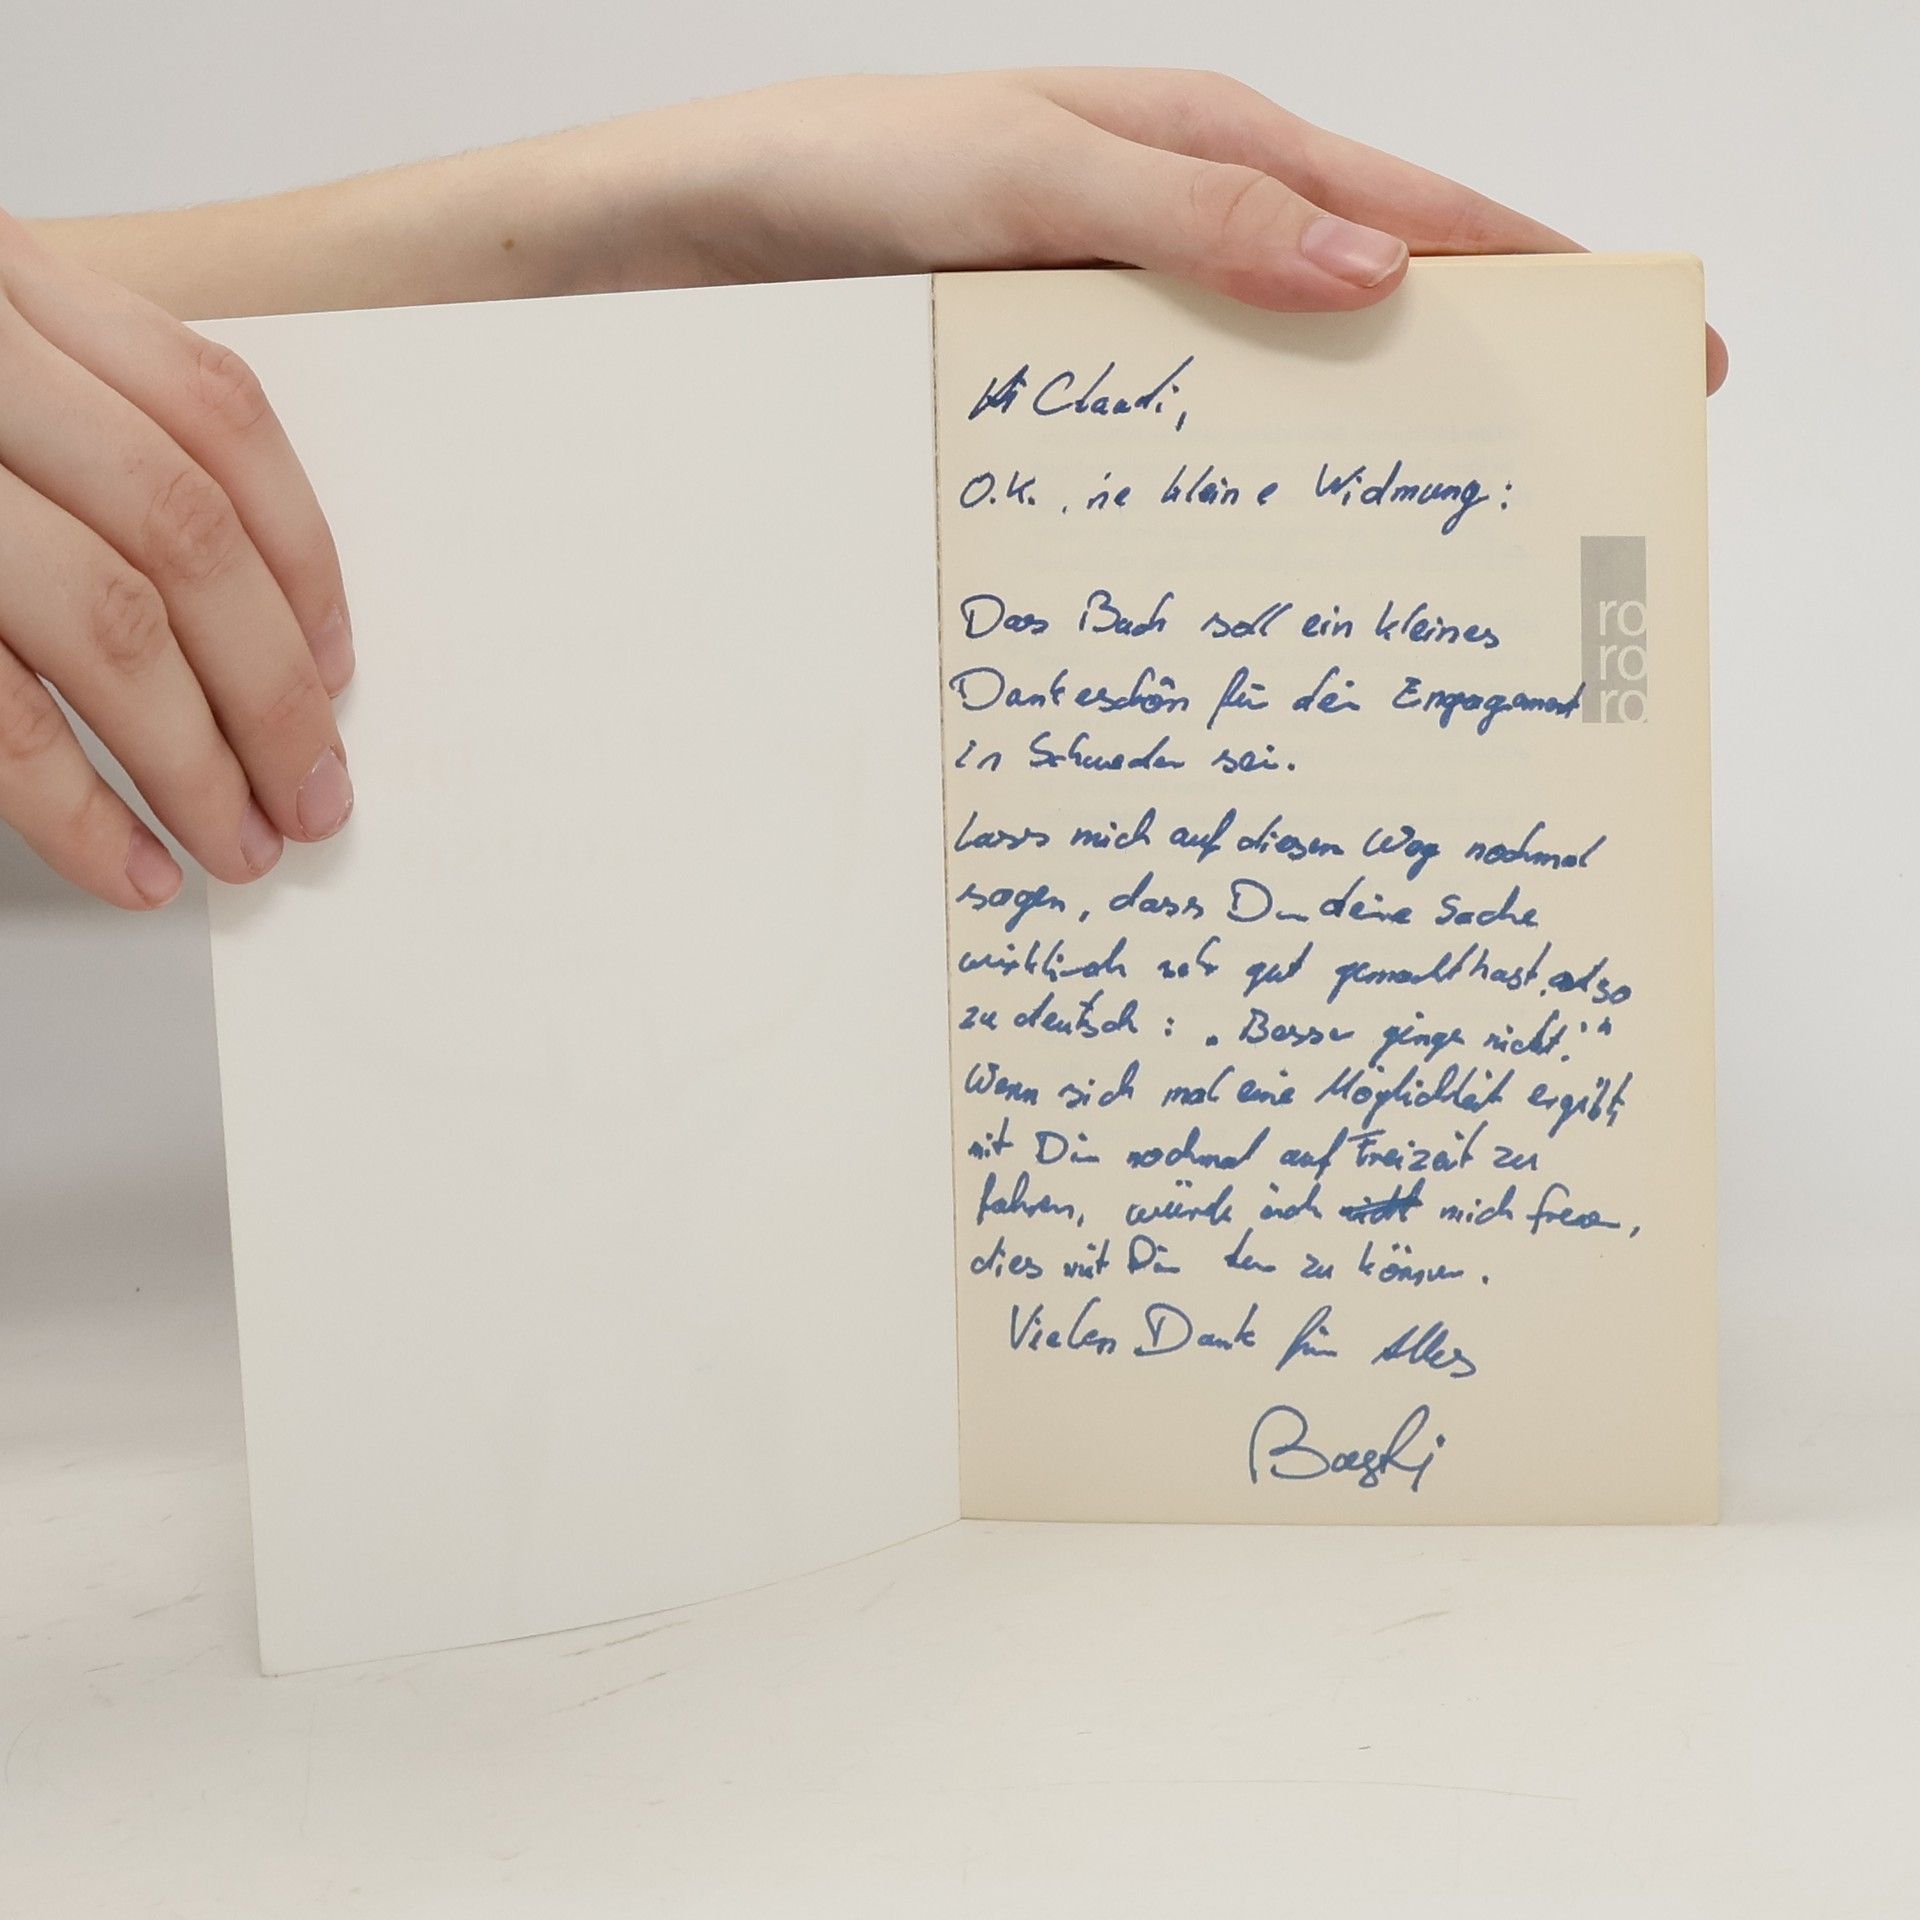 Hi Claudi,
O.K., 'ne kleine Widmung:
Das Buch soll ein kleines
Dankeschön für dein Engagement
in Schweden sein.
Lass mich auf diesem Weg nochmal
sagen, dass Du deine Sache
wirklich sehr gut gemacht hast, also
zu deutsch: „Besser gings nicht!"
Wenn sich mal eine Möglichkeit ergibt,
mit Dir nochmal auf Freizeit zu
fahren, würde ich mich freuen,
dies mit Dir tun zu können.
Vielen Dank für Alles
ro
ro
ro